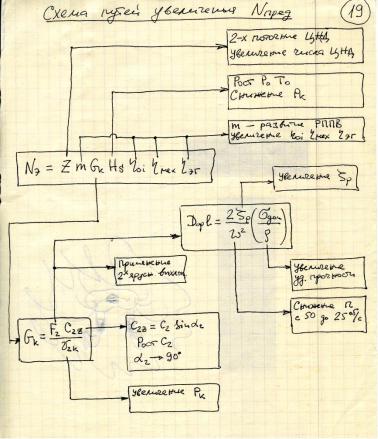 Схема путей увеличения Nпред
19
2-х поточные ЦНД
Увеличение числа ЦНД
Рост P₀ T₀
Снижение Pк
m — развитие РППВ
Увеличение η₀i ηмех ηэг
Nэ = Z m Gк H₀ η₀i ηмех ηэг
Увеличение ξp
Dορl = 2ξp/ω² (σдоп/ρ)
Применение
2ˣ ярусн. выхлопа
Увеличение
уд. прочности
Снижение n
с 50 до 25 об/с
Gк = F₂ C₂z / v₂к
C₂z = C₂ sin α₂
Рост C₂
α₂ → 90°
Увеличение Pк